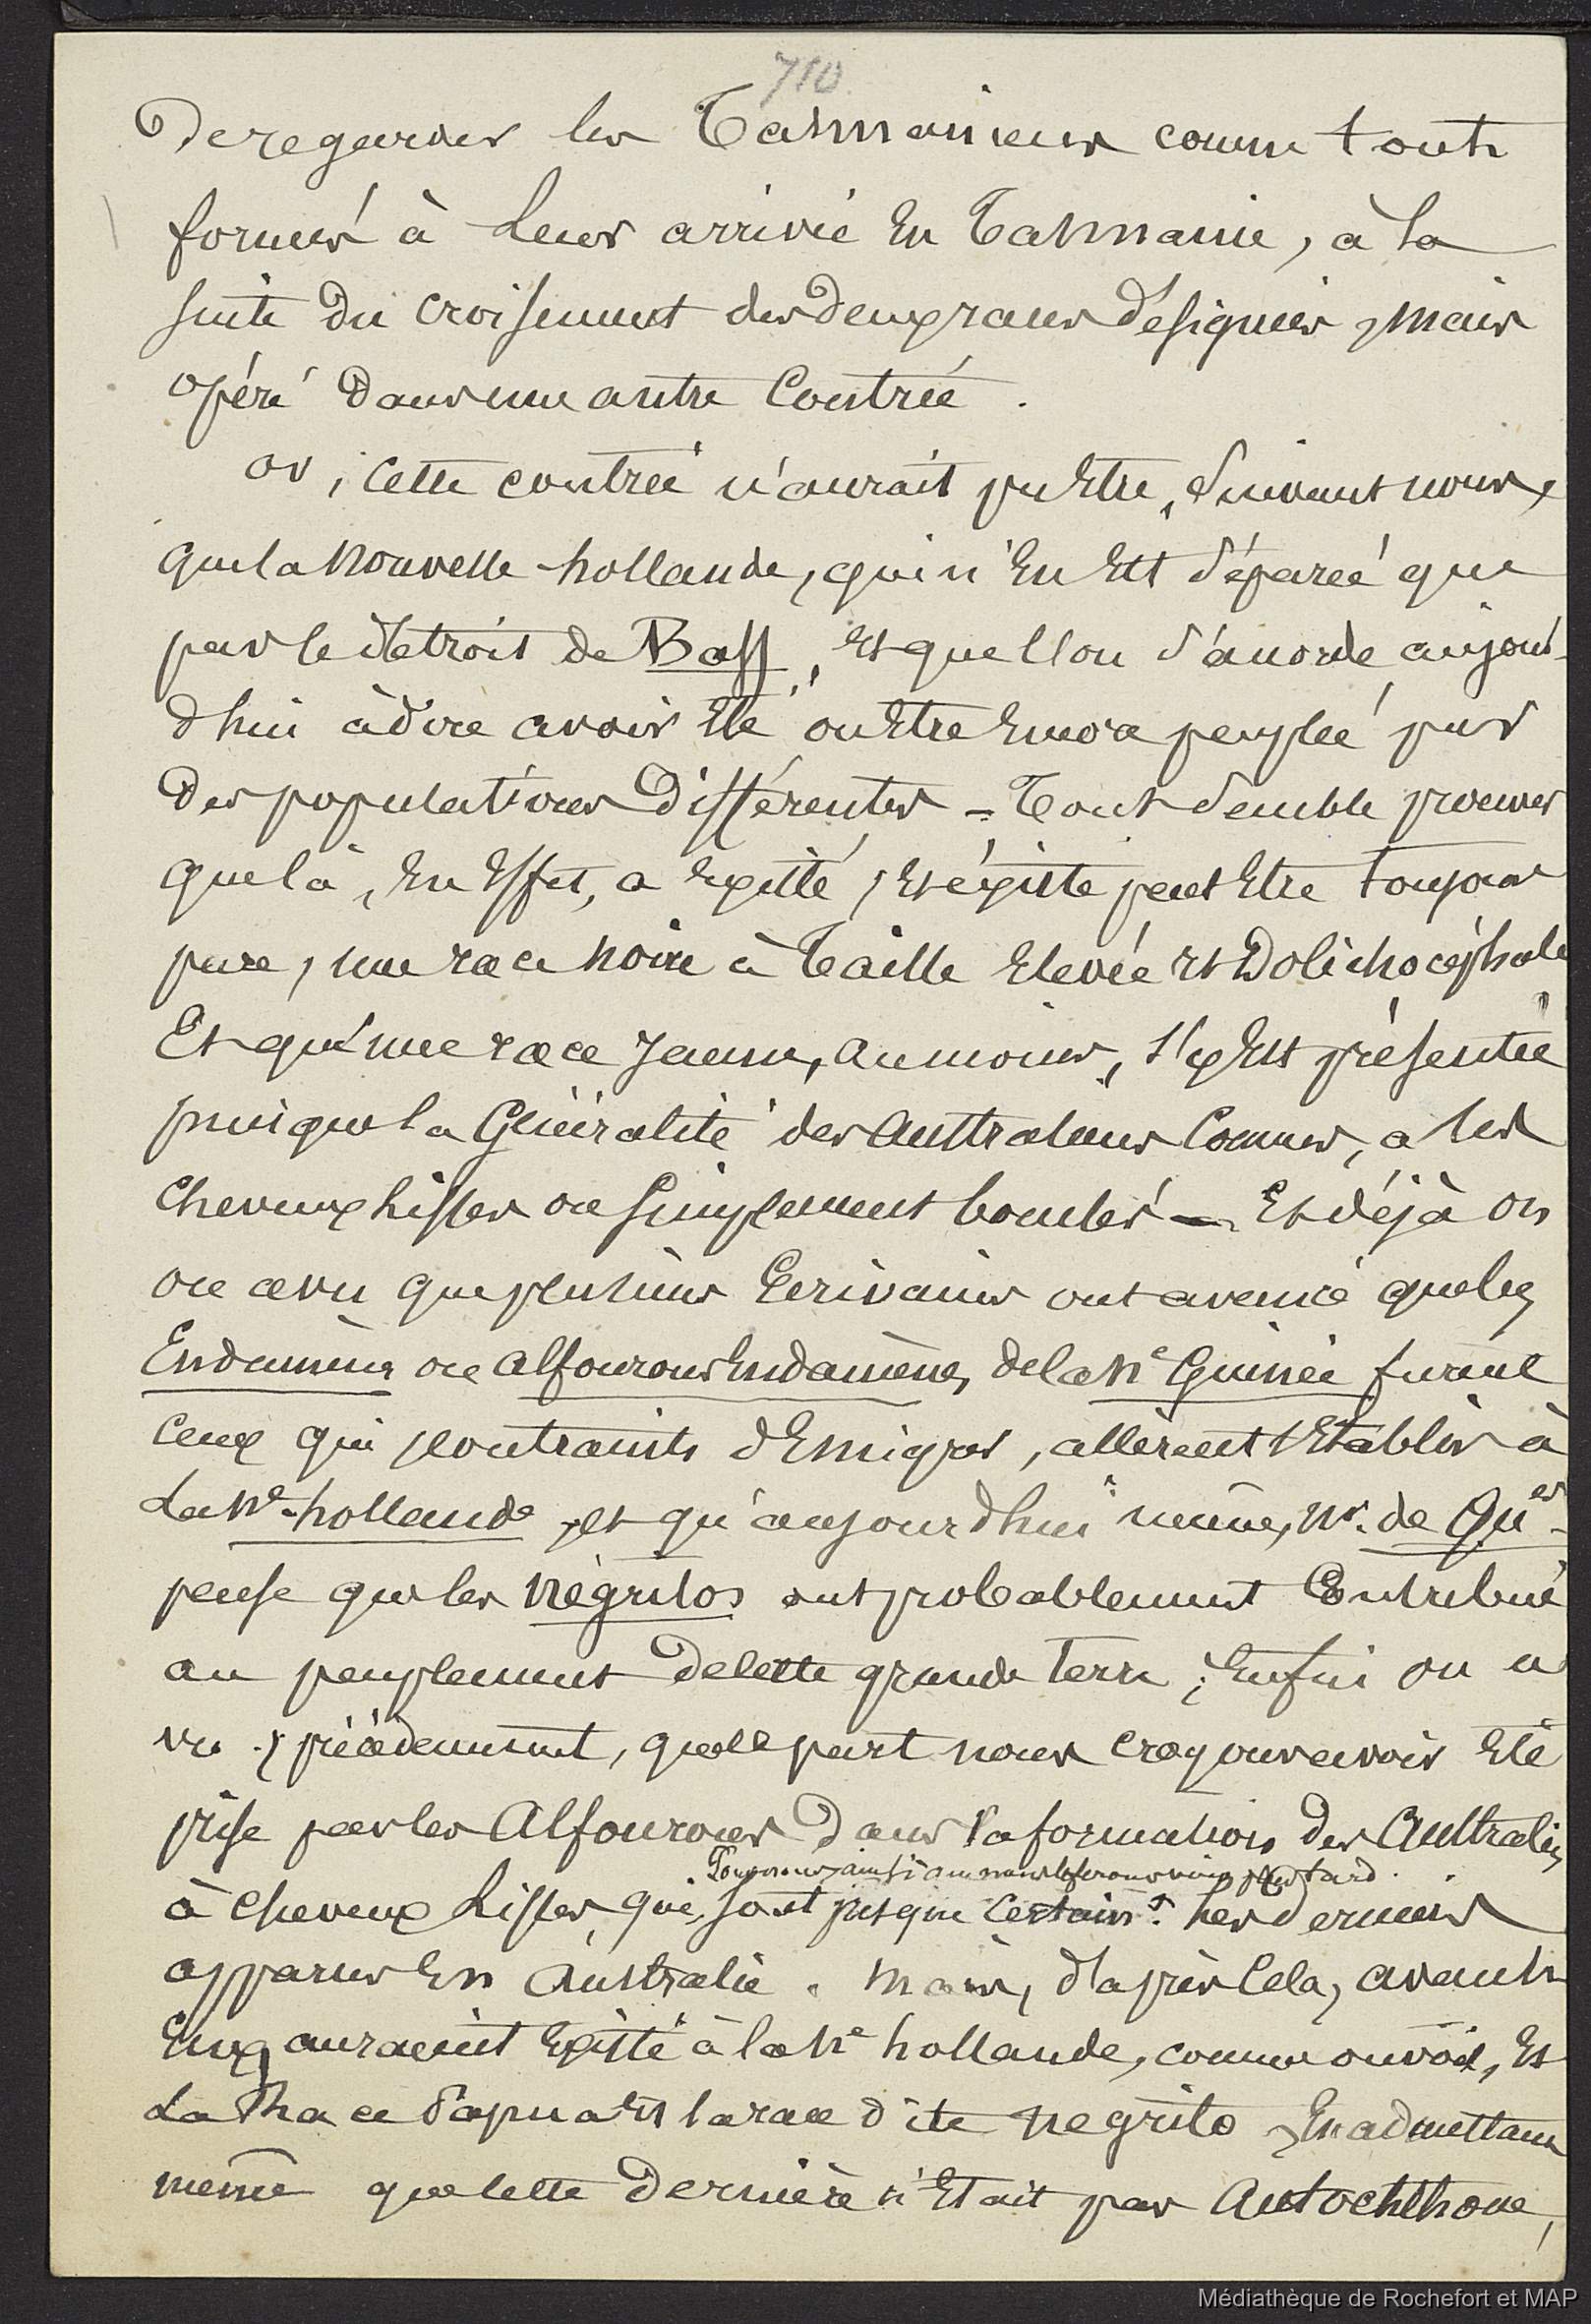 710
De regarder les Tasmaniens comme tout
formés à leur arrivée En Tasmanie, à la
suite Du croisement des Deux races Désignées, mais
opéré Dans une autre Contrée.
or, cette contrée n'aurait pu Etre, suivant nous,
que la Nouvelle-hollande, qui n'En Est séparée que
par le détroit de Bass, Et que l'on s'accorde aujour-
d'hui à dire avoir Eté ou Etre Encore peuplée par
Des populations Différentes - Tout semble prouver
que là, En Effet, a Existé, Et éxiste peut Etre toujours
pure, une race Noire à Taille Elevée et Dolichocéphale
Et qu'une race Jaune, au moins, s'y Est présentée
puisque la Généralité des Australiens Connus, a les
cheveux lisses ou simplement bouclés - Et déjà on
a vu que plusieurs Ecrivains ont avancé que les
Endamènes ou Alfourous Endamènes, de la Nle Guinée furent
ceux qui contraints d'Emigrer, allèrent s'Etablir à
La Nle-hollande, et qu'aujourd'hui même, Mr. de Qu.es
pense que les Négritos ont probablement Contribué
au peuplement de cette grande Terre; Enfin on a
vu précédemment, quelle part nous croyons avoir Eté
prise par les Alfourous Dans la formation des Australiens
Toujours ainsi que nous le ferons voir plus tard.
à cheveux Lisses, qui, sont presque certaint. les derniers
apparus En Australie. Mais, d'après Cela, avant
Eux auraient Existé à la Nle hollande, comme on voit, Et
La Race Papua Et la race dite Negrito, En admettant
même que cette Dernière n'Etait pas Autochthone,
Médiathèque de Rochefort et MAP